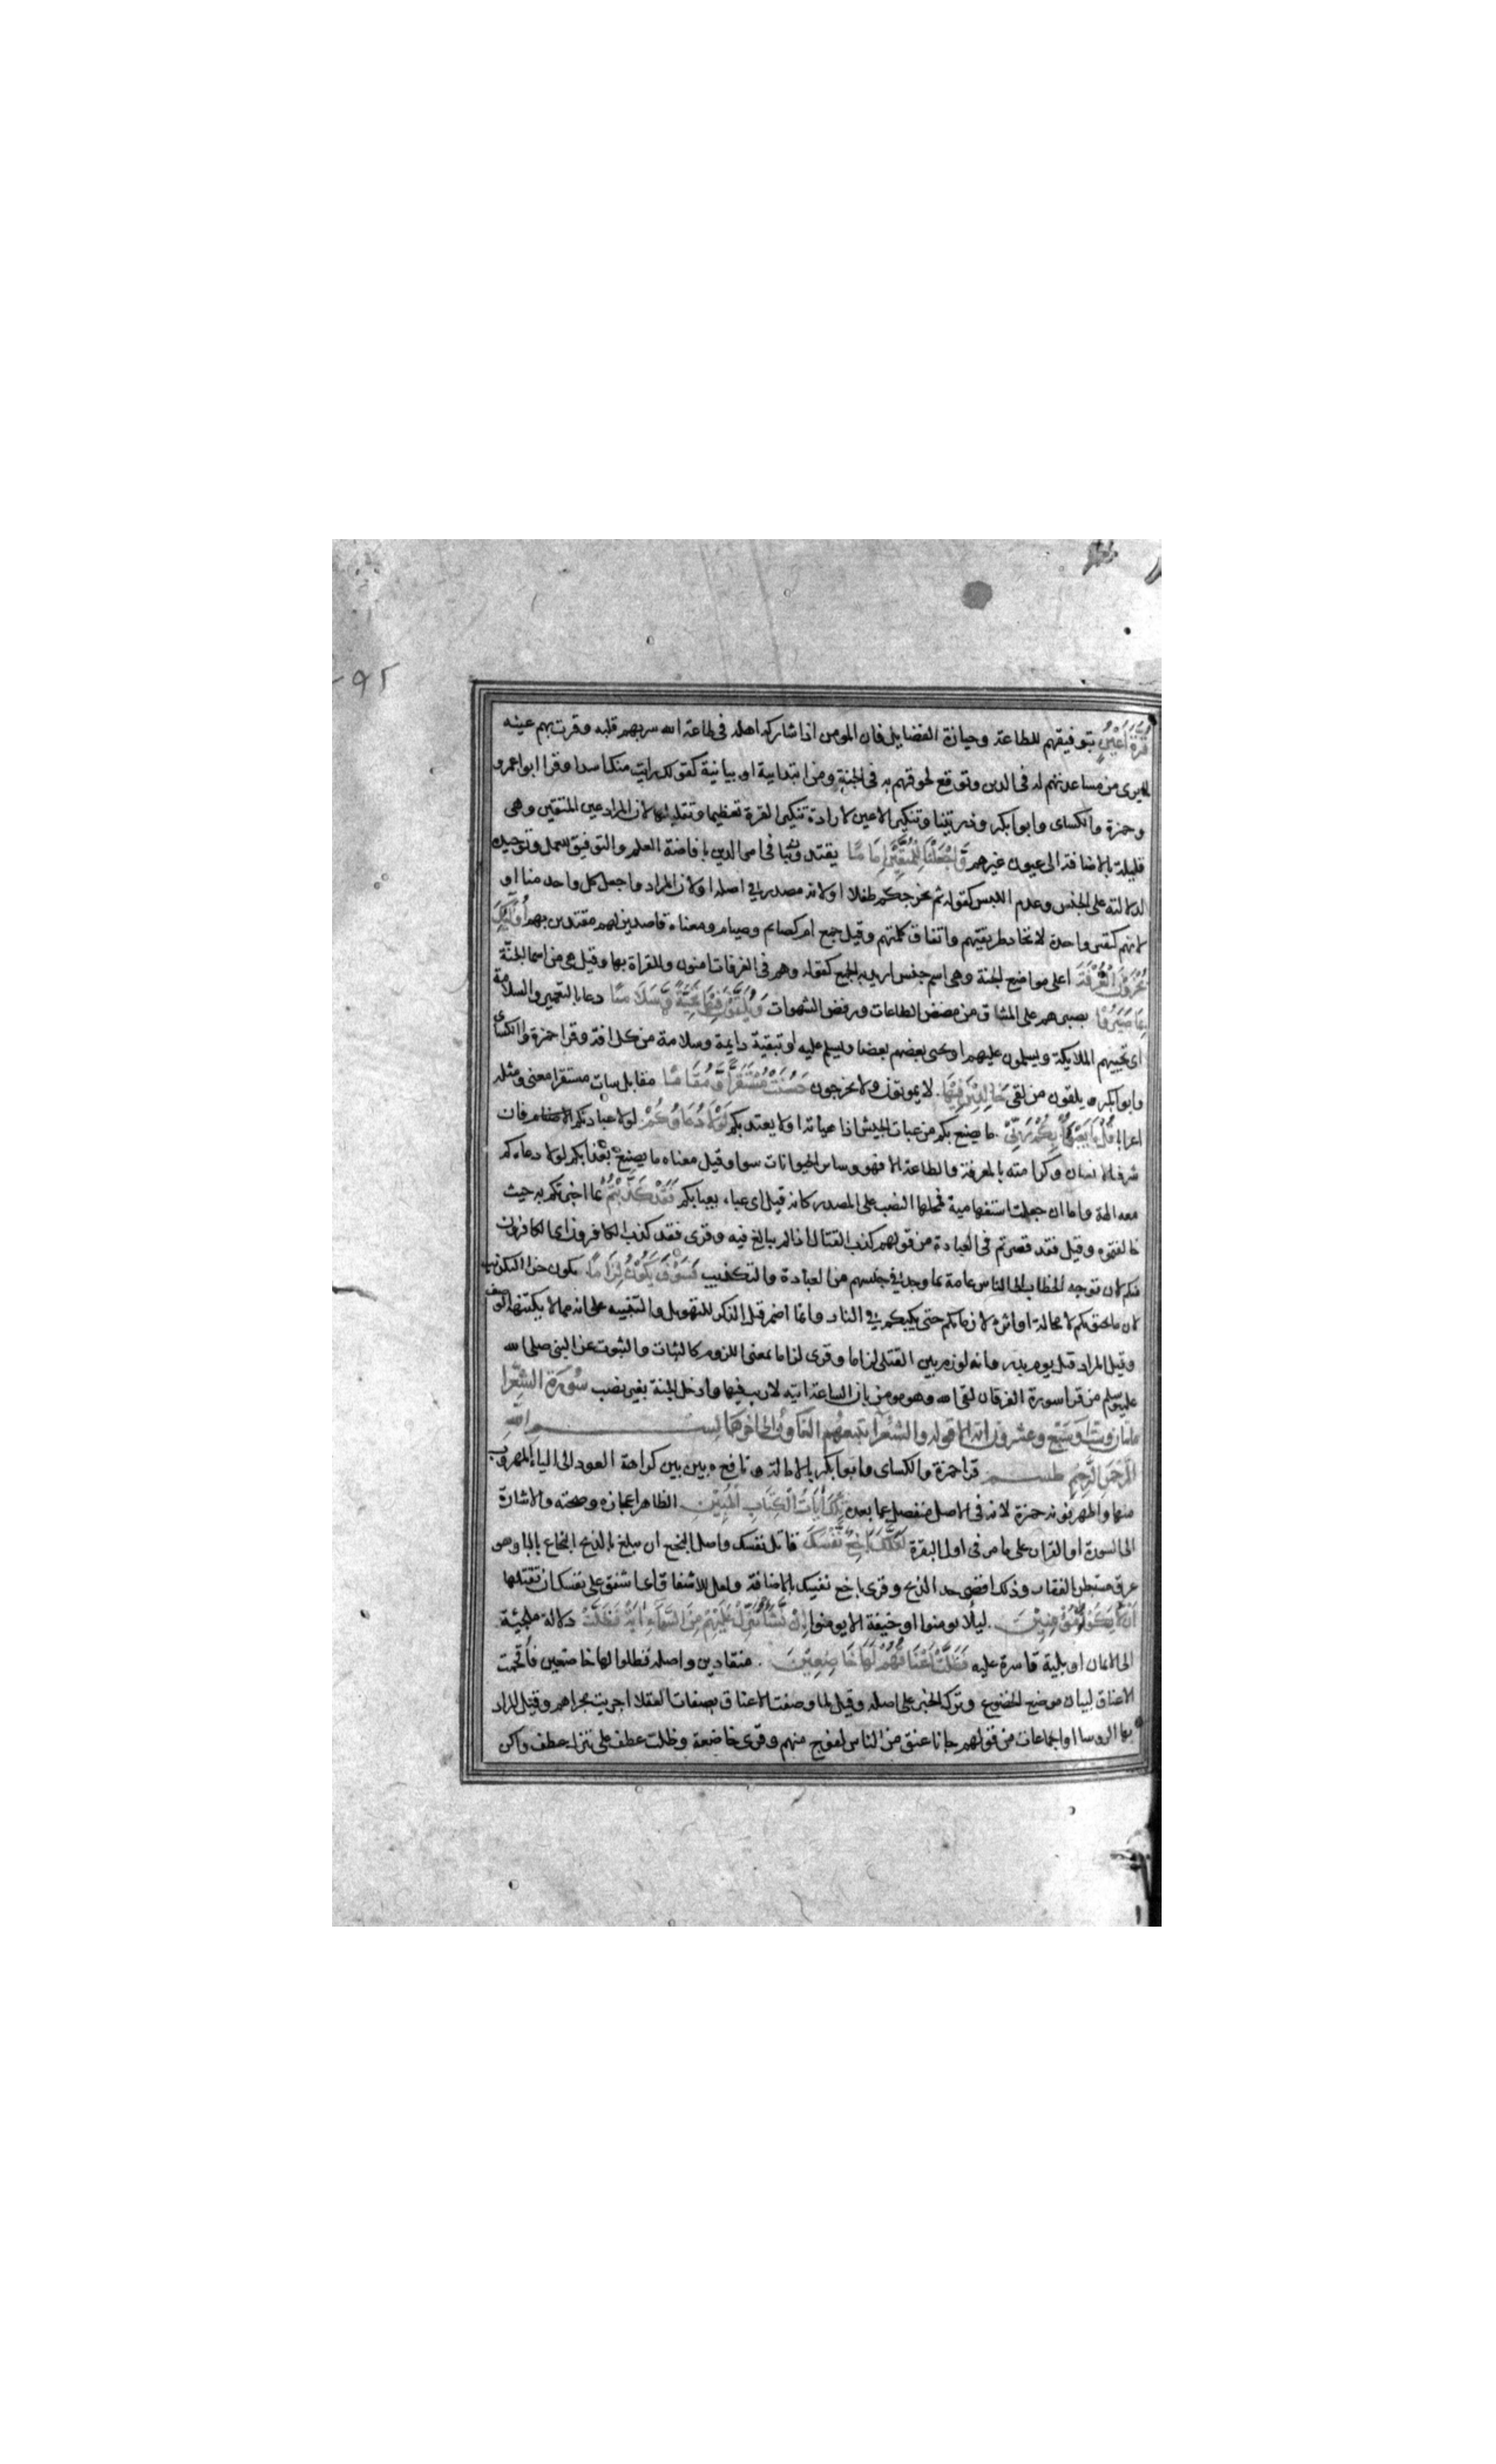 ٩٢
قُرَّةَ أَعْيُنٍ بتوفيقهم للطاعة وحيازة الفضايل فان المومن اذا شاركه اهله فى طاعة الله سر بهم قلبه وقرت بهم عينه
لما يرى من مساعدتهم له فى الدين وتوقع لحوقهم به فى الجنة ومن ابتدايية او بيانية كقولك رايت منك اسدا وقرا ابو عمرو
وحمزة والكساى وابو بكر وذريتنا وتنكير الاعين لارادة تنكير القرة تعظيما وتقليلها لان المراد عين المتقين وهى
قليلة بالاضافة الى عيون غيرهم وَاجْعَلْنَا لِلْمُتَّقِينَ إِمَامًا يقتدون بنا فى امر الدين بافاضة العلم والتوفيق للعمل وتوحيده
لدلالته على الجنس وعدم اللبس كقوله ثم يخرجكم طفلا او لانه مصدر فى اصله او لان المراد واجعل كل واحد منا او
لانهم كنفس واحدة لاتحاد طريقتهم واتفاق كلمتهم وقيل جمع ام كصايم وصيام ومعناه قاصدين لهم مقتدين بهم أُولَئِكَ
يُجْزَوْنَ الْغُرْفَةَ اعلى مواضع الجنة وهى اسم جنس اريد به الجمع كقوله وهم فى الغرفات امنون وللقراة بها وقيل هى من اسما الجنّة
بِمَا صَبَرُوا بصبرهم على المشاق من مضض الطاعات ورفض الشهوات وَيُلَقَّوْنَ فِيهَا تَحِيَّةً وَسَلَامًا دعا بالتعمير والسلامة
اى تحييهم الملايكة ويسلمون عليهم او يحى بعضهم بعضا ويسلم عليه او تبقية دايمة وسلامة من كل افة وقرا حمزة والكساى
وابو بكر يلقون من لقى خَالِدِينَ فِيهَا لا يموتون ولا يخرجون حَسُنَتْ مُسْتَقَرًّا وَمُقَامًا مقابل سات مستقرا معنى ومثله
اعرابا قُلْ مَا يَعْبَؤُا بِكُمْ رَبِّي ما يصنع بكم من عبات الجيش اذا هياته او لا يعتد بكم لَوْلَا دُعَاؤُكُمْ لولا عبادتكم فان
شرف الانسان وكرامته بالمعرفة والطاعة والا فهو وساير الحيوانات سوا وقيل معناه ما يصنع بعذابكم لولا دعاءكم
معه الهة وما ان جعلت استفهامية فمحلها النصب على المصدر كانه قيل اى عباء يعبا بكم فَقَدْ كَذَّبْتُمْ بما اخبرتكم به حيث
خالفتموه وقيل فقد قصرتم فى العبادة من قولهم كذب القتال اذا لم يبالغ فيه وقرى فقد كذب الكافرون اى الكافرون
منكم لان توجه الخطاب الى الناس عامة بما وجد فى جنسهم من العبادة والتكذيب فَسَوْفَ يَكُونُ لِزَامًا يكون جزا التكذيب
لازما يحيق بكم لا محالة او اثره لازما بكم حتى يكبكم فى النار وانما اضمر قبل الذكر للتهويل والتنبيه على انه مما لا يكتنهه الوصف
وقيل المراد قتل يوم بدر وانه لوزم بين القتلى لزاما وقرى لزاما بمعنى اللزوم كالثبات والثبوت عن النبى صلى الله
عليه وسلم من قرا سورة الفرقان لقى الله وهو مومن بان الساعة اتيه لا ريب فيها وادخل الجنة بغير نصب سُورَة الشعرا
مايتان وست او سَبْع وعشرون اية الا قوله والشعرا يتبعهم الغاوون الى اخرها بســـم الله
الرَّحْمَنِ الرَّحِيمِ طســـم قرا حمزة والكساى وابو بكر بالامالة ونافع بين بين كراهة العود الى الياء المهروب
منها واظهر نونه حمزة لانه فى الاصل منفصل عما بعده تِلْكَ آيَاتُ الْكِتَابِ الْمُبِينِ الظاهر اعجازه وصحته والاشارة
الى السورة او القران على ما مر فى اول البقرة لَعَلَّكَ بَاخِعٌ نَّفْسَكَ قاتل نفسك واصل البخع ان يبلغ بالذبح البخاع بالبا وهو
عرق مستبطن الفقار وذلك اقصى حد الذبح وقرى باخع نفسك بالاضافة ولعل للاشفاق اى اشفق على نفسك ان تقتلها
أَلَّا يَكُونُوا مُؤْمِنِينَ ليلا يومنوا او خيفة الا يومنوا إِنْ نَّشَأْ نُنَزِّلْ عَلَيْهِمْ مِنَ السَّمَآءِ آيَةً فَظَلَّتْ دلالة ملجئة
الى الايمان او بلية قاسرة عليه فَظَلَّتْ أَعْنَاقُهُمْ لَهَا خَاضِعِينَ منقادين واصله فظلوا لها خاضعين فأقحمت
الاعناق لبيان موضع الخضوع وترك الخبر على اصله وقيل لما وصفت الاعناق بصفات العقلا اجريت مجراهم وقيل المراد
بها الروسا او الجماعات من قولهم جانا عنق من الناس لفوج منهم وقرى خاضعة وظلت عطف على ننزل عطف واكن